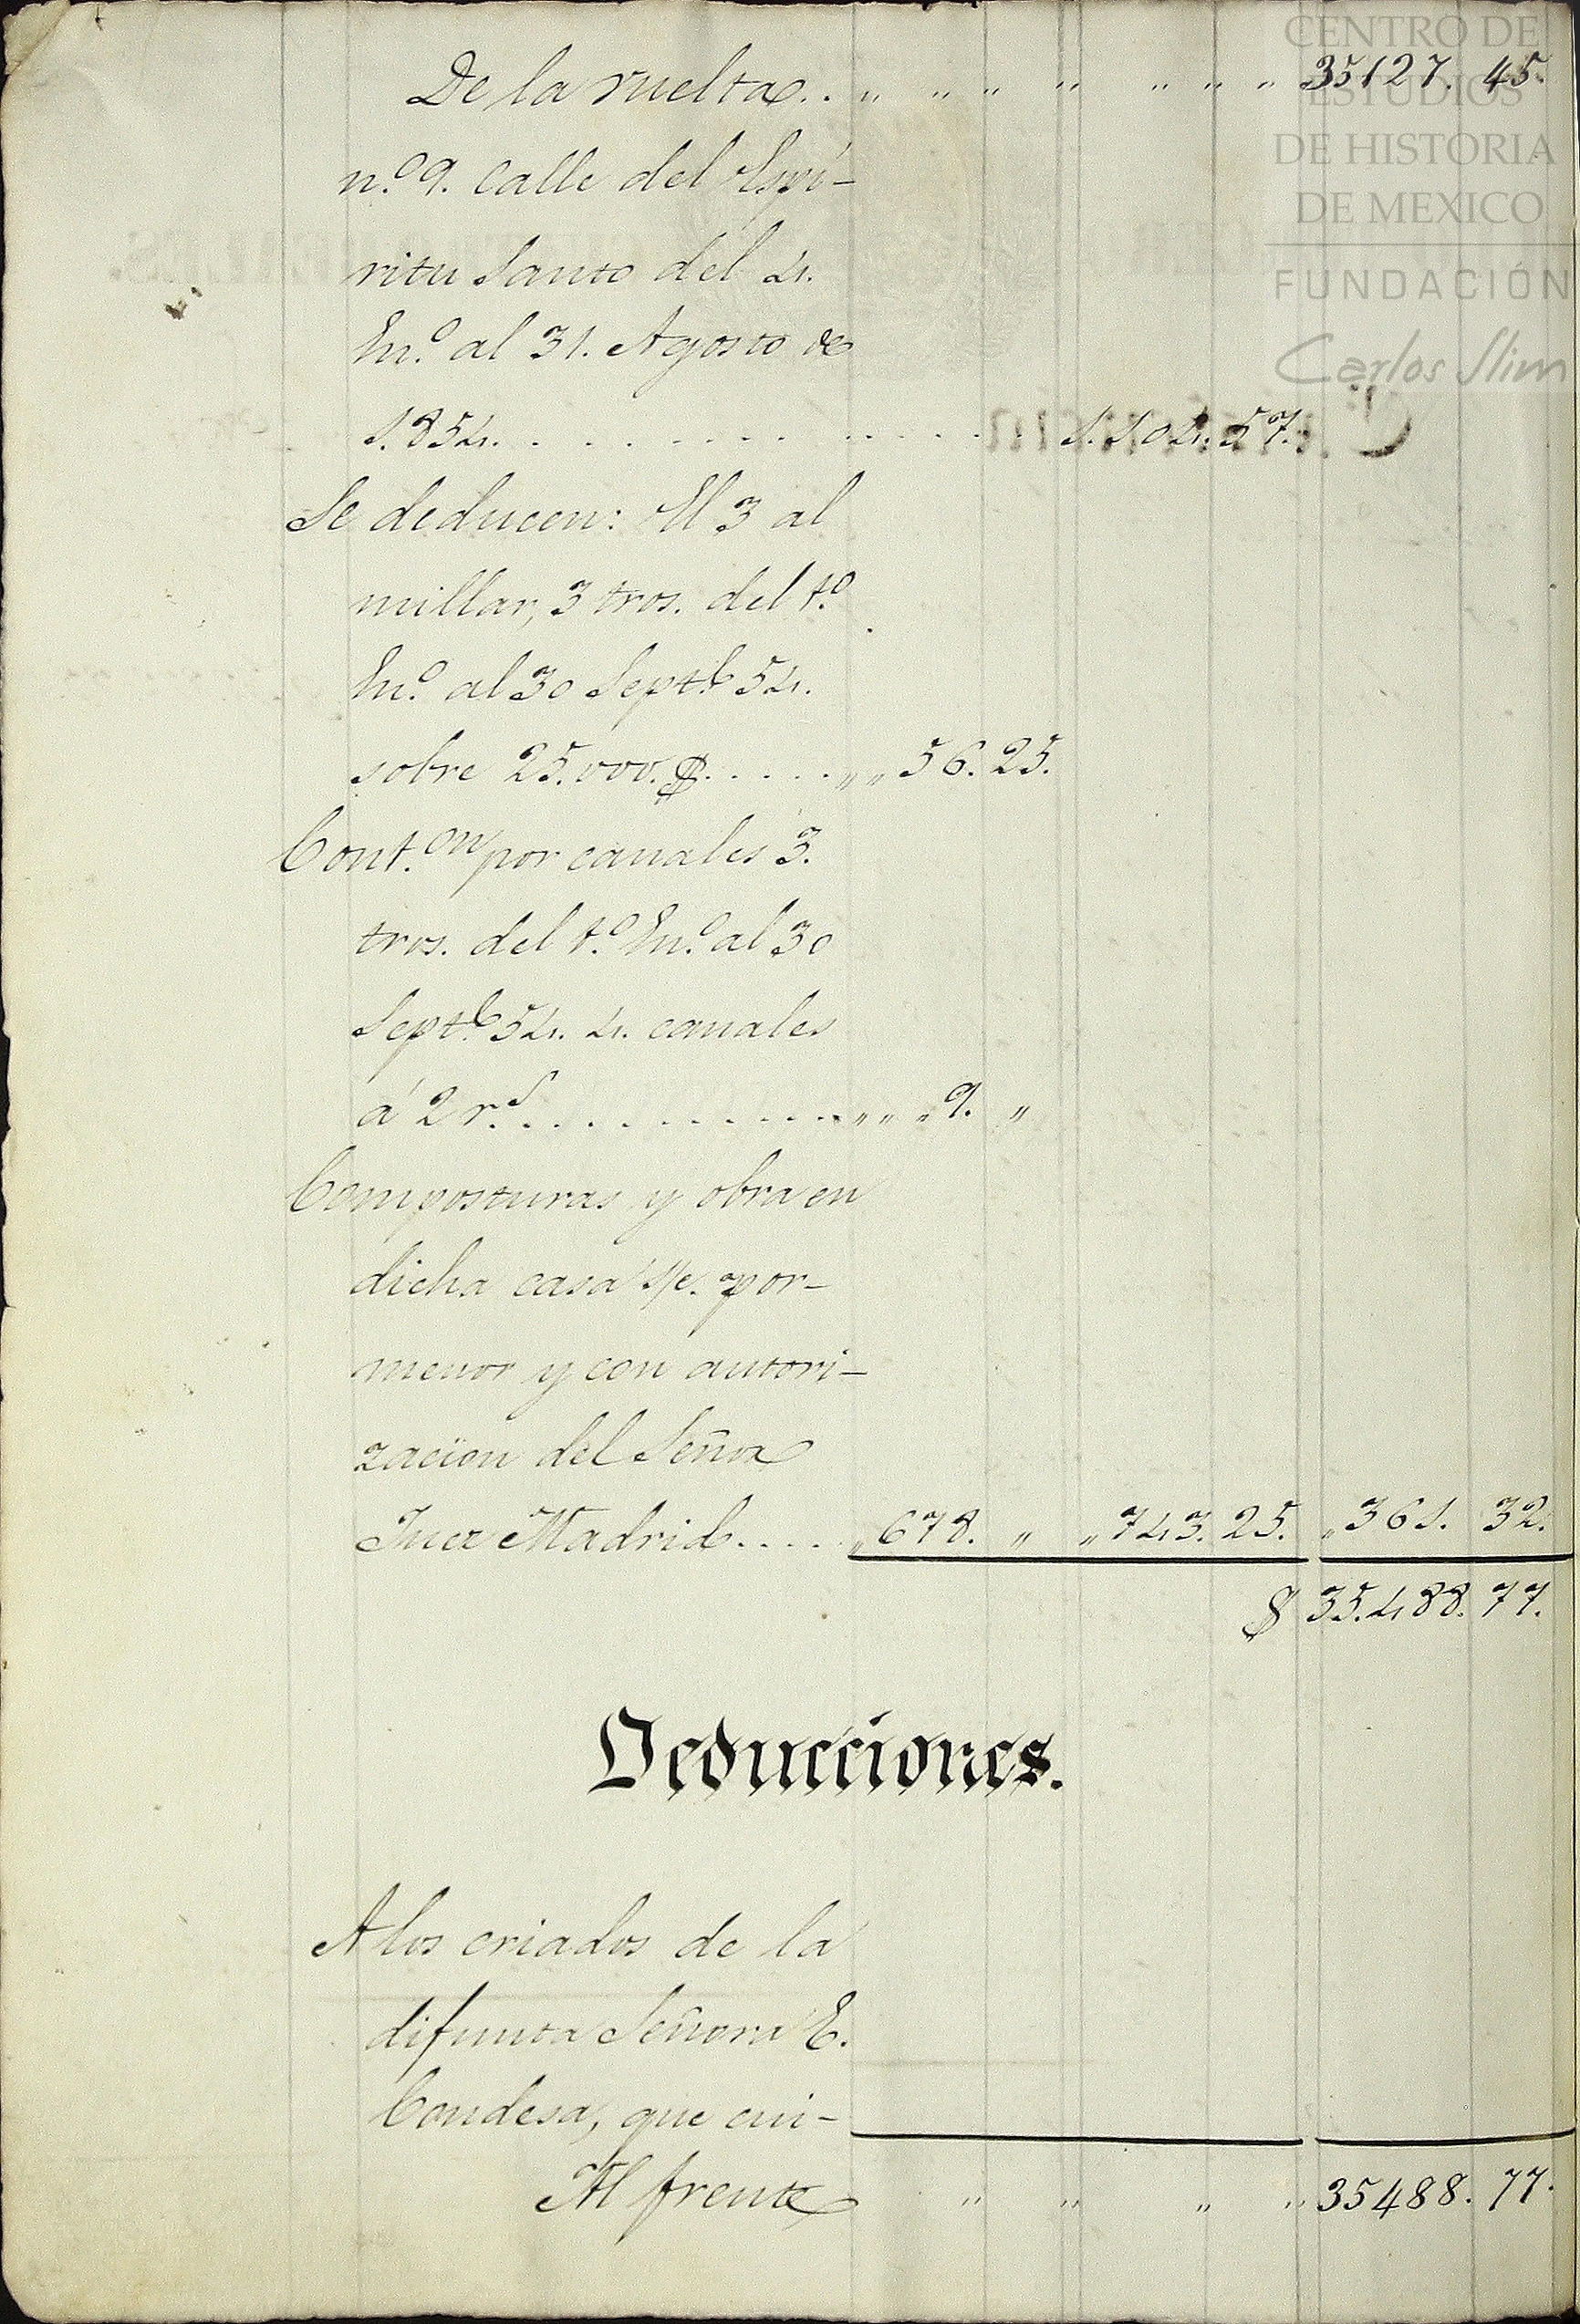 CENTRO DE
ESTUDIOS
DE HISTORIA
DE MEXICO
FUNDACIÓN
Carlos Slim
De la vuelta. . „ „ „ „ „ „ „ 35127. 45.
n.º 9. Calle del Espí-
ritu Santo del 4.
En.º al 31. Agosto de
1.854. . . . . . . . . . . . . . 1.104. 57.
Se deducen: El 3 al
millar, 3 tros. del 1.º
En.º al 30 Sept.b 54.
sobre 25.000. $. . . . . . „ „ 56. 25.
Cont.on por canales 3.
tros. del 1.º En.º al 30
Sept.b 54. 4. canales
á 2 r.s . . . . . . . . . . . „ „ „ 9. „
Composturas y obra en
dicha casa s/c. por-
menor y con autori-
zacion del Señor
Juez Madrid. . . . . „ 678. „ „ 743. 25. „ 361. 32.
$ 35.488. 77.
Deducciones.
A los criados de la
difunta Señora E.
Condesa, que cui-
Al frente „ „ „ „ 35488. 77.